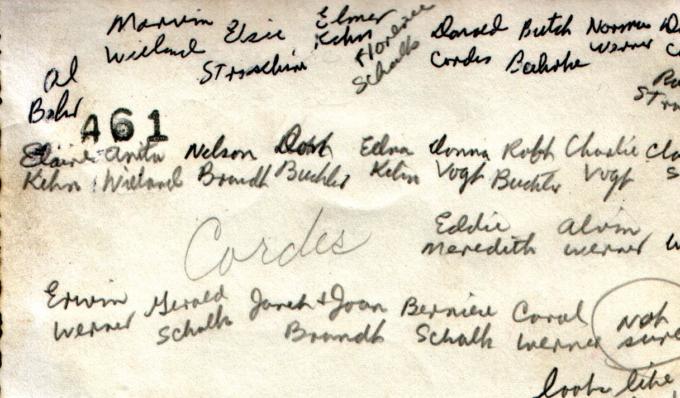 Marvin Elsie Elmer Florence Donald Butch Norma D
Wieland Stroschin Kehn Schalk Cordes Bahrke Werner C
Al
Bahr
A61
Elaine Anita Nelson Edna Donna Robt Charlie Cla
Kehn Wieland Brandt Buchler Kehn Vogt Buchler Vogt S
Eddie Alvin
Meredith Werner W
Cordes
Erwin Gerald Janet + Joan Berniece Carol Not
Werner Schalk Brandt Schalk Werner sure
looks like